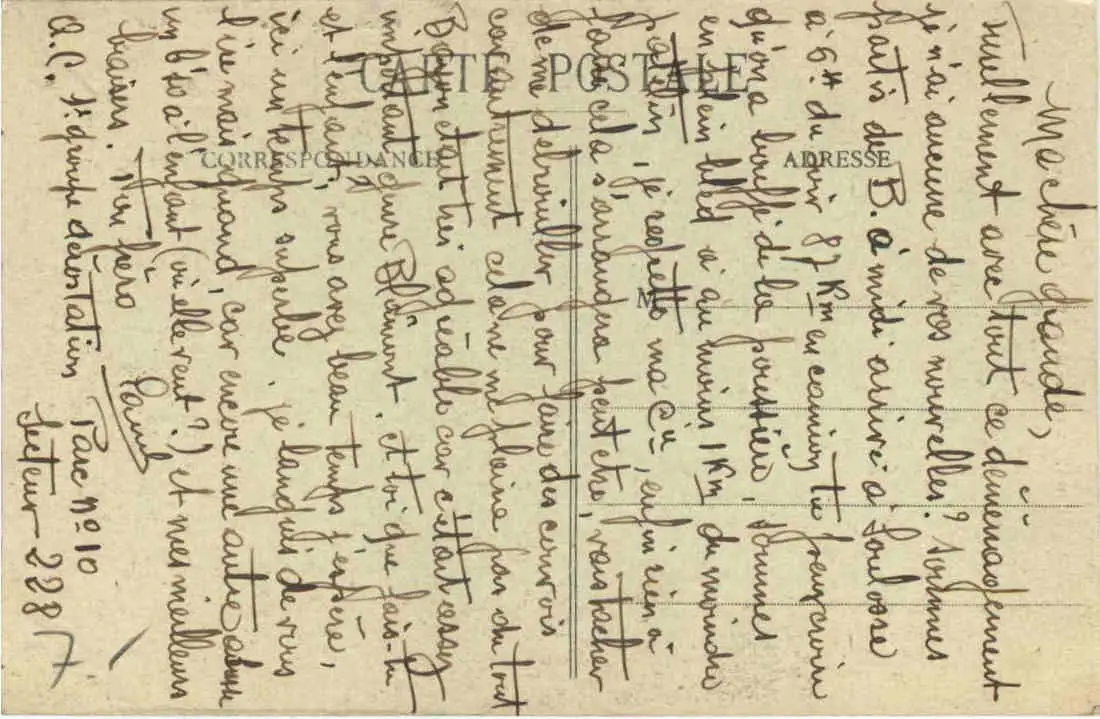 CARTE POSTALE
CORRESPONDANCE
ADRESSE
M
Ma chère grande,
Nullement avec tout ce deménagement
je n'ai aucune de vos nouvelles? Sommes
partis de B. à midi arrivé à Soulosse
à 6H du soir 87 Km en camion, tu peux croire
qu'on a bouffé de la poussière, sommes
en plein bled à au moins 1 Km du moindre
patelin, je regrette ma Cie, enfin rien à
faire cela s'arrangera peut etre, vais tacher
de me debrouiller pour faire des convois
car autrement cela ne me plaire pas du tout
Bayon etait très agréable car c'était assez
important, genre Blamont. et toi que fais-tu
et, vous avez beau temps j'espère,
ici un temps superbe. je languis de vous
lire mais quand, car encore une autre adresse
un à l'enfant (où elle veut?) et mes meilleurs
baisers. Ton frèro Paul
1er groupe aérostation Parc n° 10
Secteur - 228